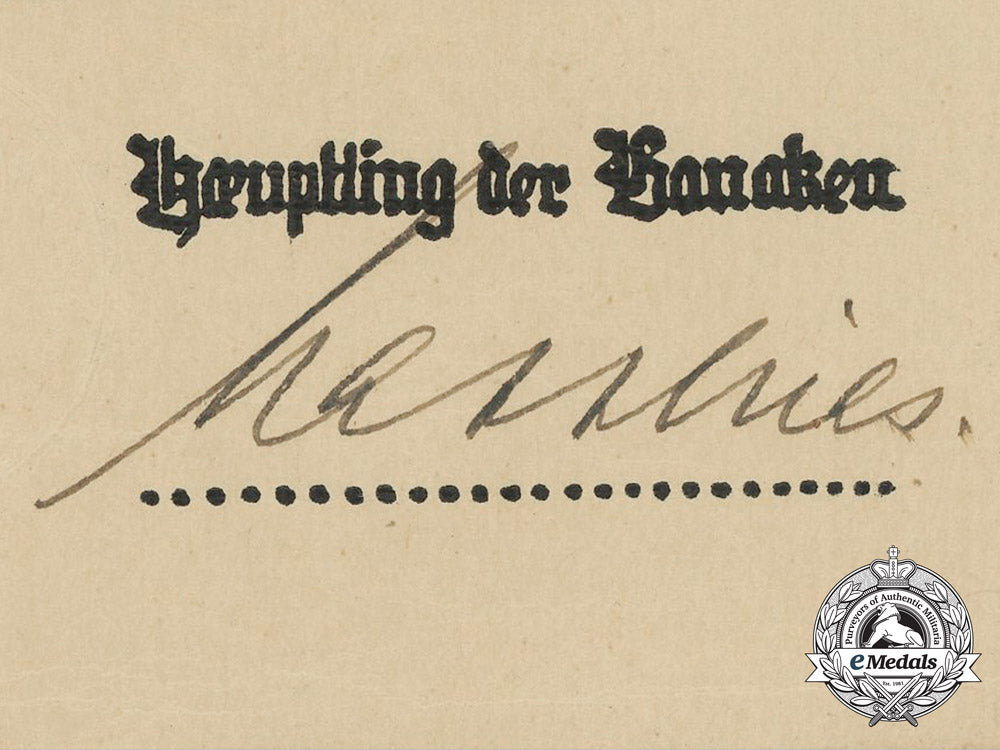 Haeuptling der Banaken
Purveyors of Authentic Militaria
eMedals
Est. 1981